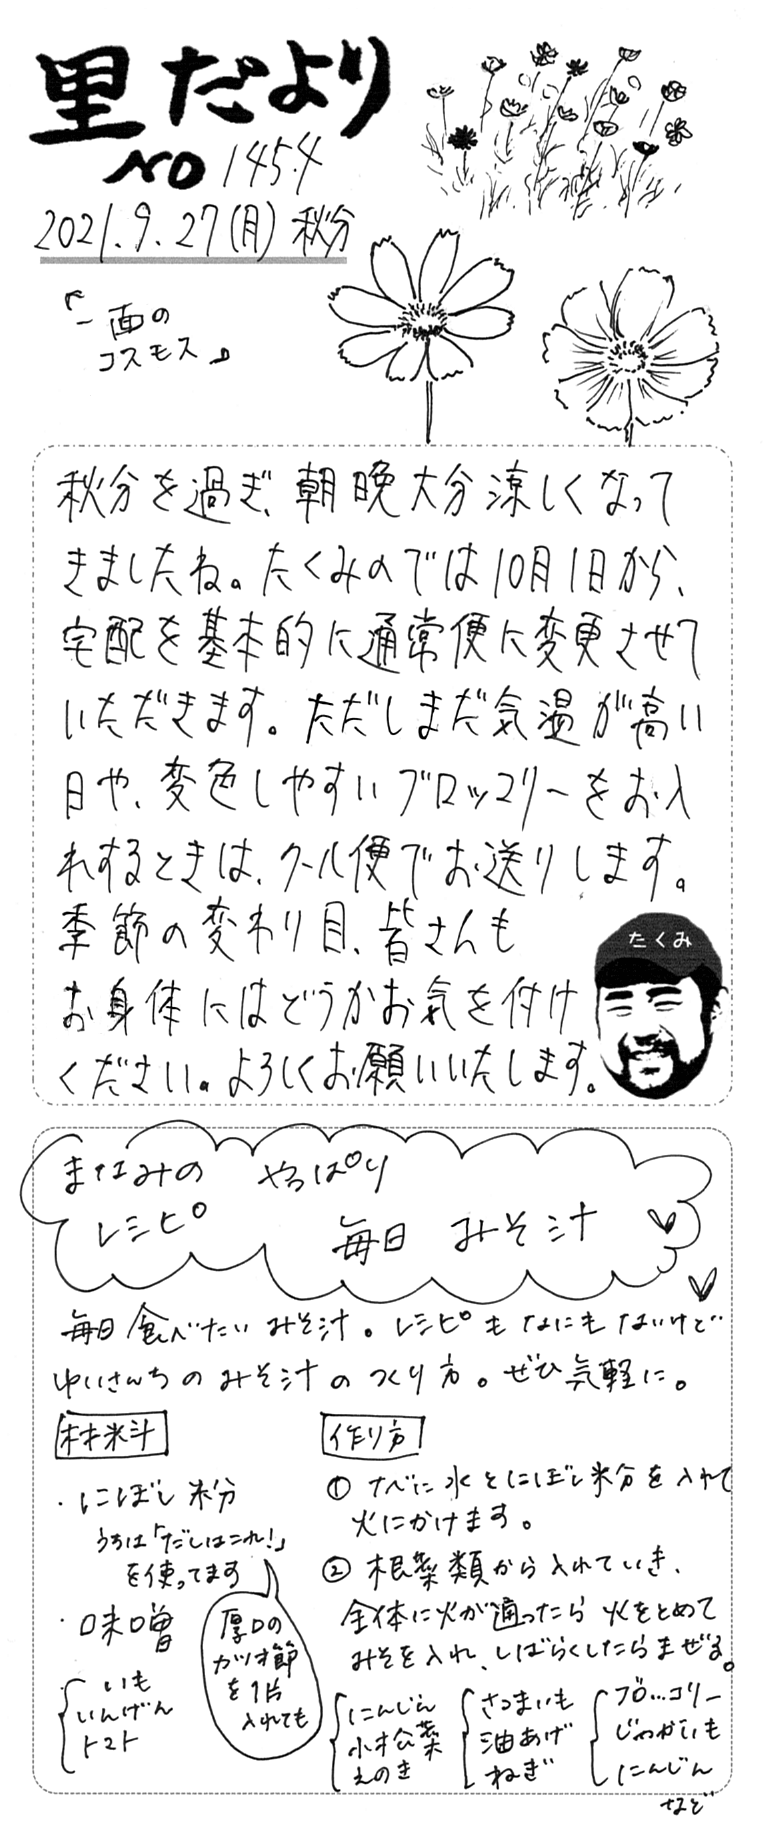 里だより
NO 1454
2021.9.27(月)秋分
「一面の
コスモス」
秋分を過ぎ、朝晩大分涼しくなって
きましたね。たくみのでは10月1日から、
宅配を基本的に通常便に変更させて
いただきます。ただしまだ気温が高い
日や、変色しやすいブロッコリーをお入
れするときは、クール便でお送りします。
季節の変わり目、皆さんも
お身体にはどうかお気を付け
ください。よろしくお願いいたします。
たくみ
まなみの やっぱり
レシピ 毎日 みそ汁
毎日食べたいみそ汁。レシピもなにもないけど
ゆいさんちのみそ汁のつくり方。ぜひ気軽に。
材料
・にぼし粉
うちは「だしはこれ!」
を使ってます
・味噌
厚口の
カツオ節
を1片
入れても
いも
いんげん
トマト
作り方
① ナベに水とにぼし粉を入れて
火にかけます。
② 根菜類から入れていき、
全体に火が通ったら火をとめて
みそを入れ、しばらくしたらまぜる。
にんじん
小松菜
えのき
さつまいも
油あげ
ねぎ
ブロッコリー
じゃがいも
にんじん
など